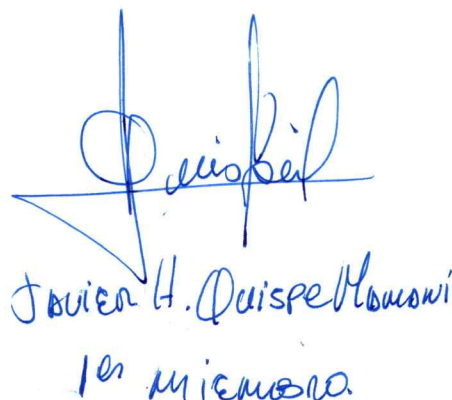 Javier H. Quispe Mamani
1er miembro.